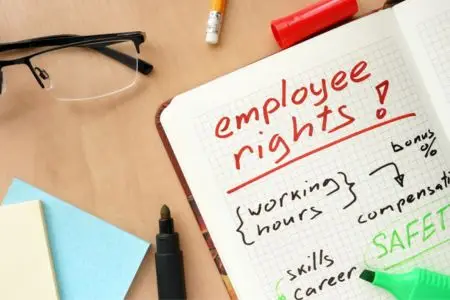 employee
rights!
{working
hours}
bonus
%
compensati
SAFET
skills
career